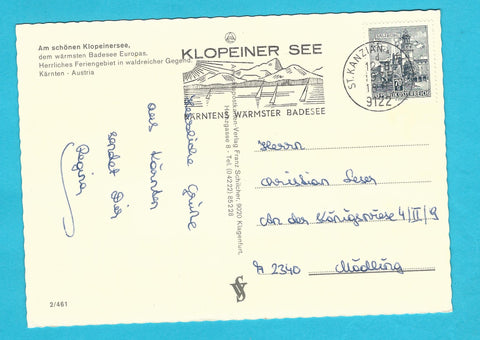 Am schönen Klopeinersee,
dem wärmsten Badesee Europas.
Herrliches Feriengebiet in waldreicher Gegend.
Kärnten - Austria
KLOPEINER SEE
KÄRNTENS WÄRMSTER BADESEE
ST. KANZIAN
9122
REPUBLIK ÖSTERREICH
Alpine Verlag Franz Schilcher, 9020 Klagenfurt,
Tel. (04222) 85228
Herzliche Grüße
aus Kärnten
sendet Dir
Regina
Herrn
Christian Leser
An der Königswiese 4/II/9
A 2340 Mödling
2/461